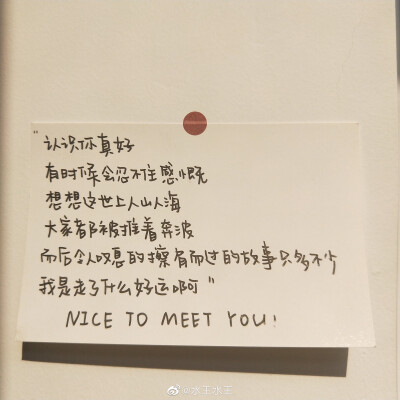 "认识你真好
有时候会忍不住感慨
想想这世上人山人海
大家都被推着奔波
而后令人叹息的擦肩而过的故事只多不少
我是走了什么好运啊"
NICE TO MEET YOU!
@水王水王